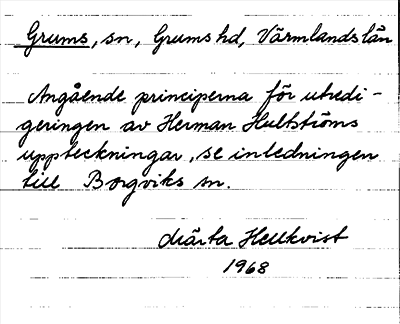 Grums, sn, Grums hd, Värmlands län
Angående principerna för utredi-
geringen av Herman Hultströms
uppteckningar, se inledningen
till Borgviks sn.
Märta Hellkvist
1968